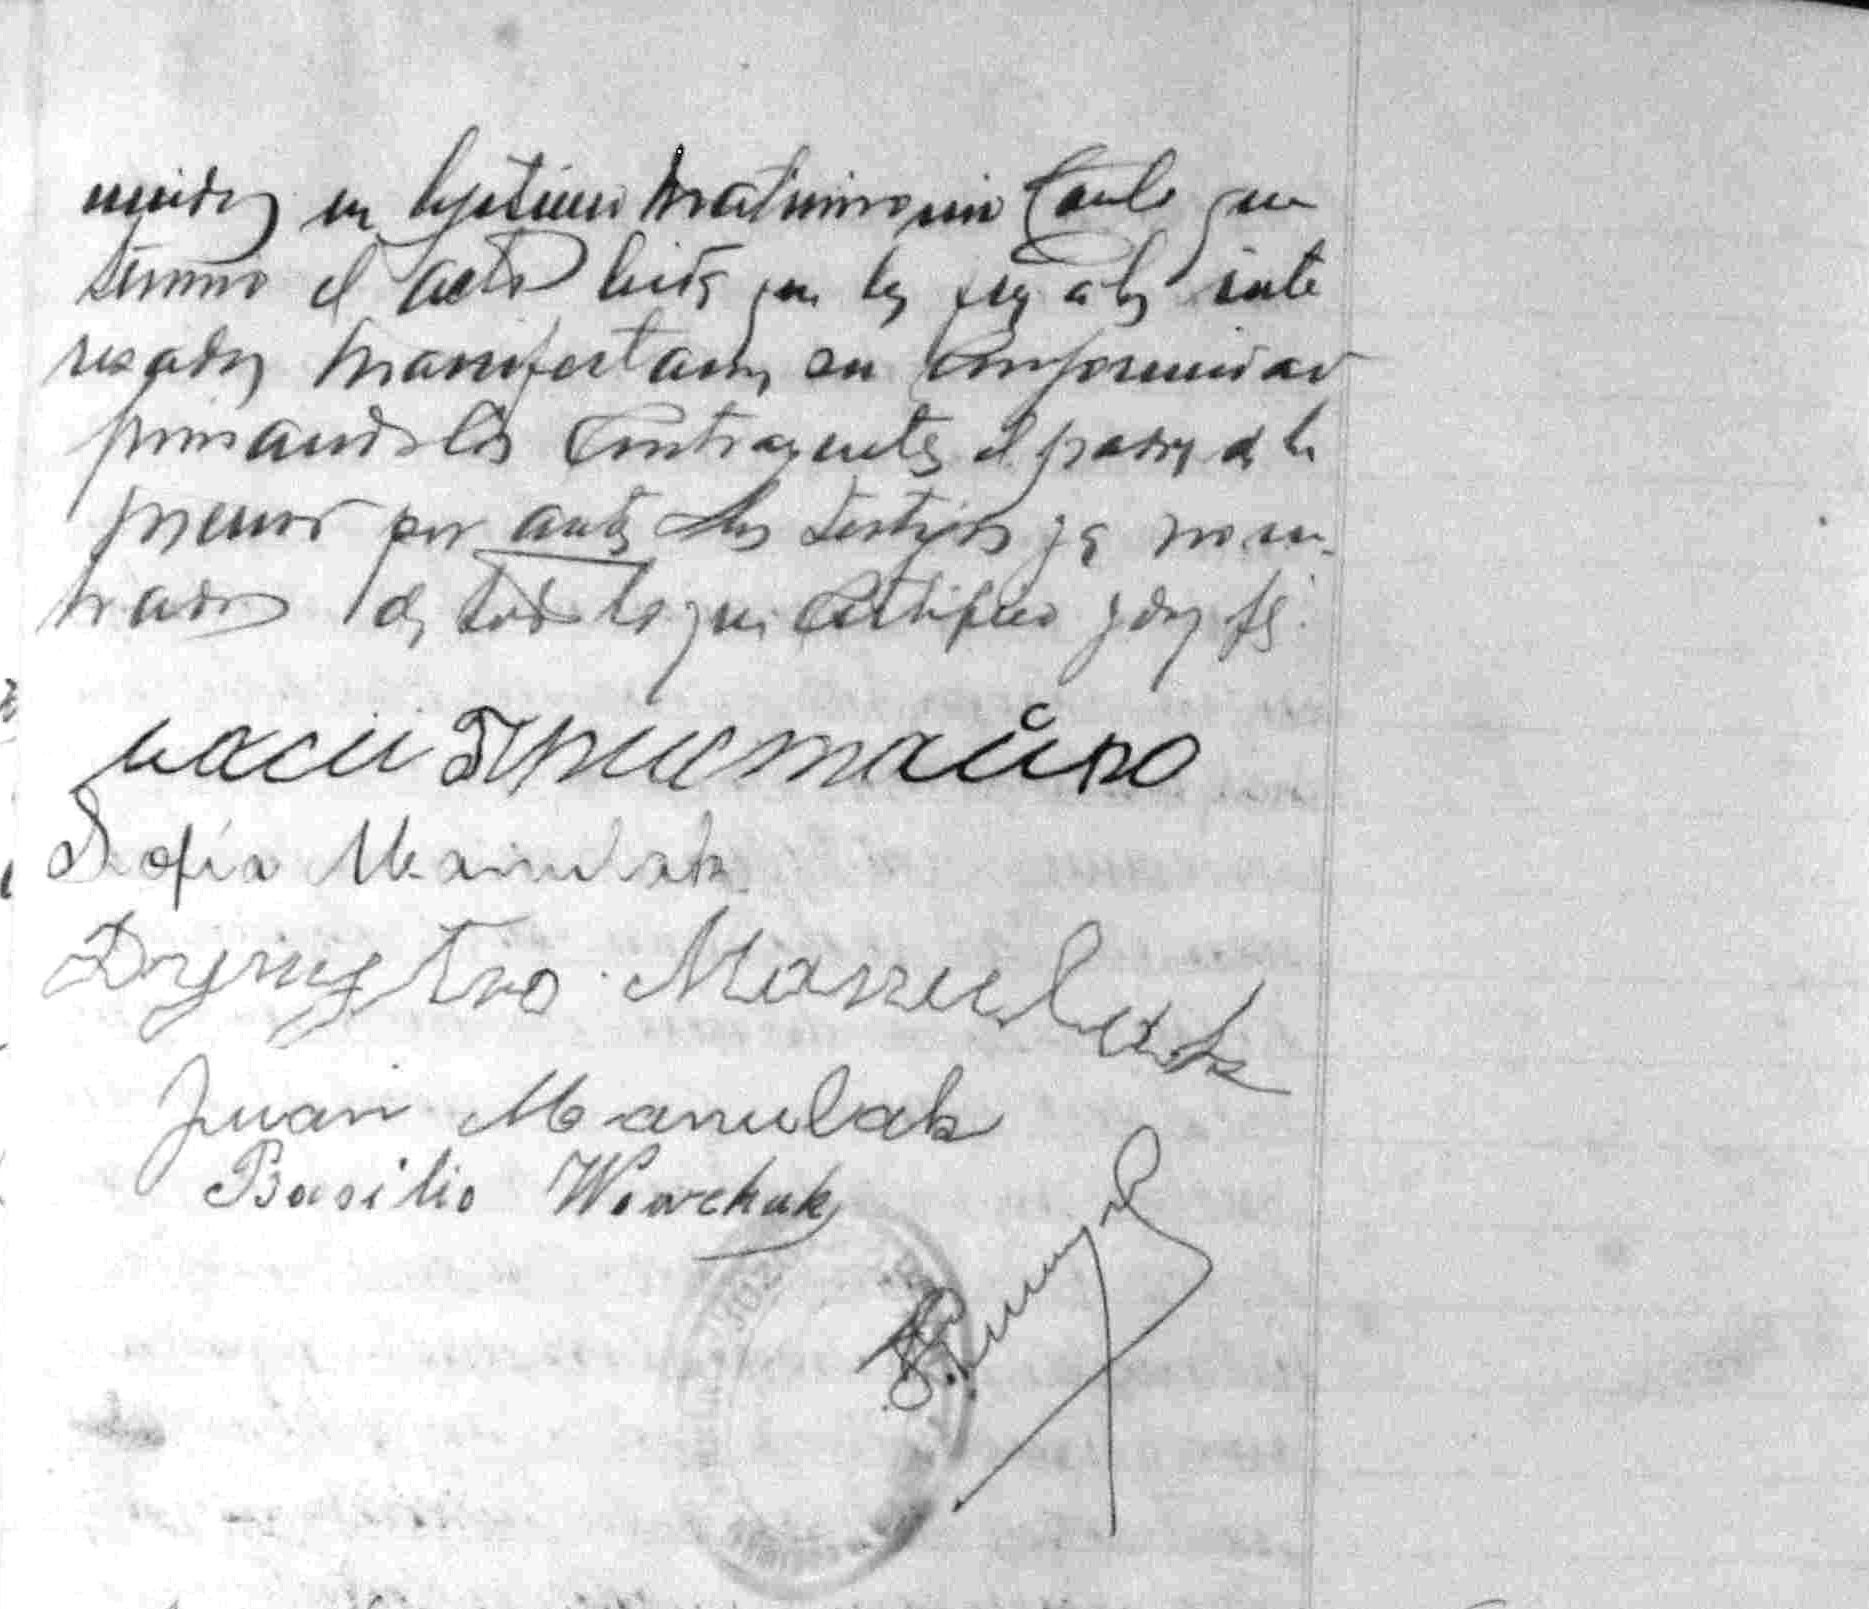 unidos en legitimo matrimonio con lo que
termino el acto leida que les fue a los inte
resados manifestaron su conformidad
firmando los contrayentes el padre de la
menor por ante los testigos ya nom-
brados de todo lo que certifico y doy fe.
васил Приймайко
Sofia Manulak
Dymytro Manulak
Juan Manulak
Basilio Worchuk